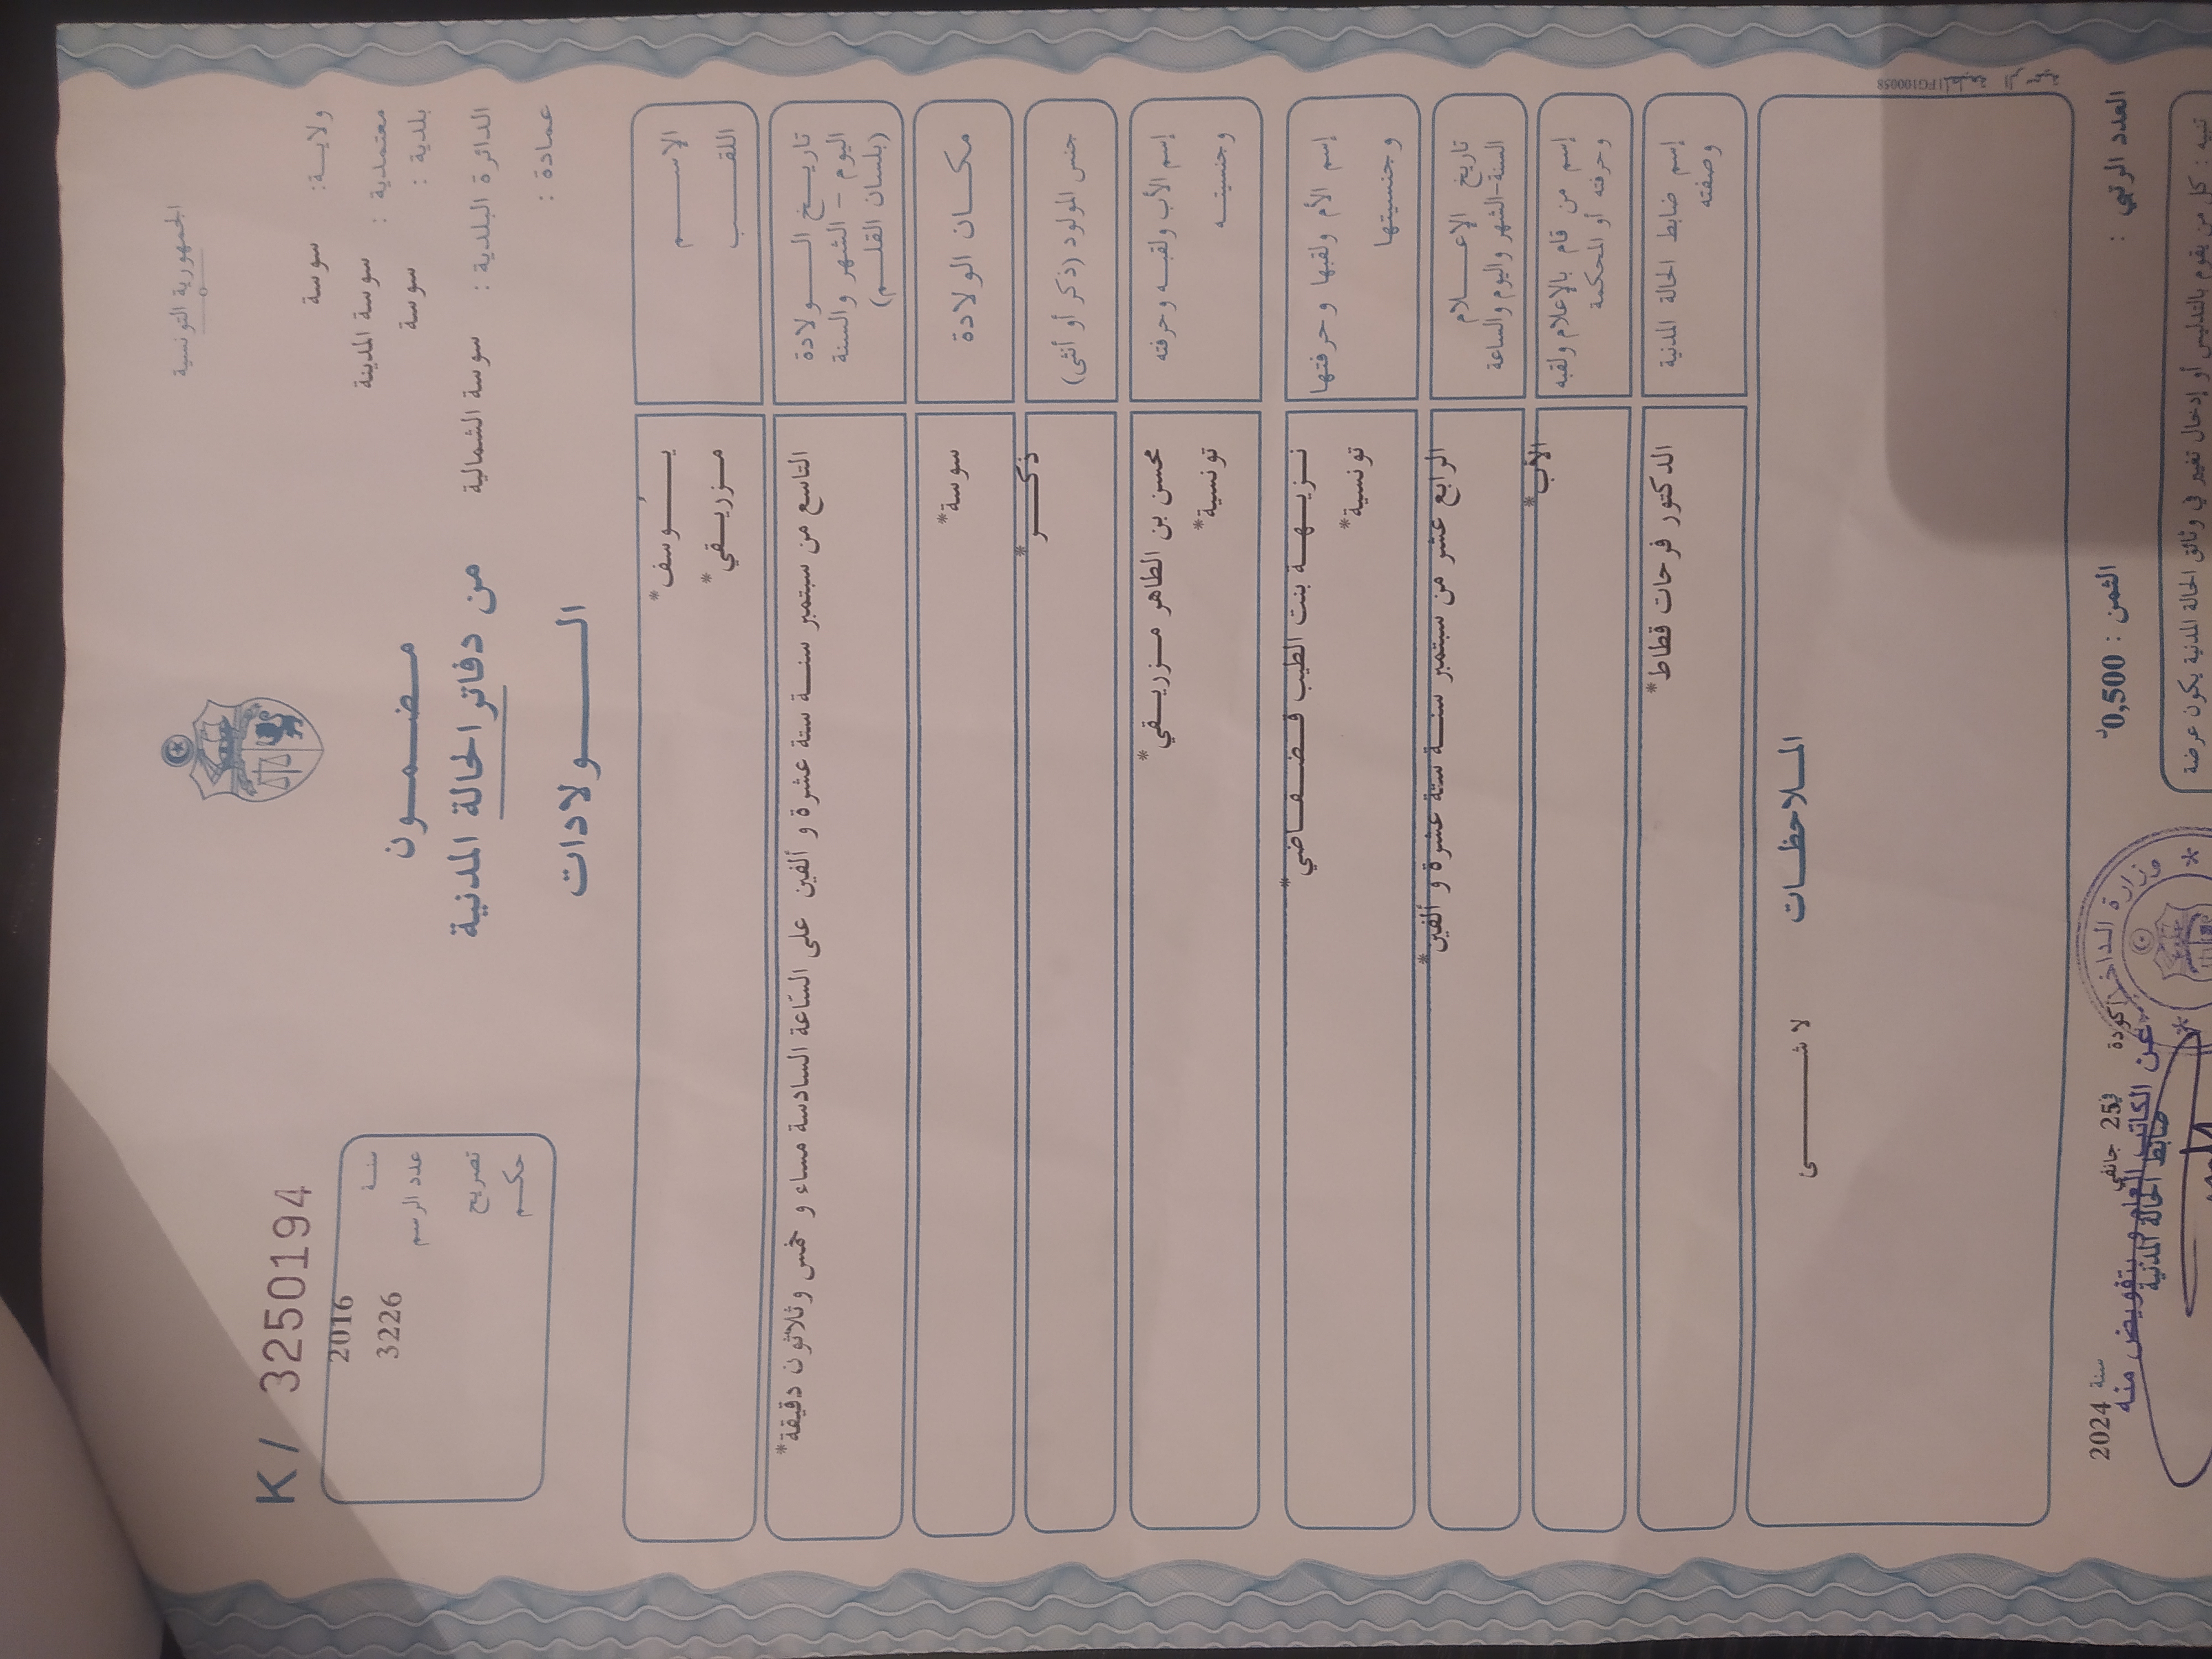 الجمهورية التونسية
ولاية: سوسة
معتمدية : سوسة المدينة
بلدية : سوسة
الدائرة البلدية : سوسة الشمالية
عمادة :
مضمون
من دفاتر الحالة المدنية
الولادات
K / 3250194
سنة 2016
عدد الرسم 3226
تصريح
حكم
الاسم يُوسف*
اللقب مزريقي*
تاريخ الولادة
اليوم - الشهر والسنة
(بلسان القلم)
التاسع من سبتمبر سنة ستة عشرة و ألفين على السّاعة السادسة مساء و خمس وثلاثون دقيقة*
مكان الولادة سوسة*
جنس المولود (ذكر أو أنثى) ذكر*
إسم الأب ولقبه وحرفته محسن بن الطاهر مزريقي*
وجنسيته تونسية*
إسم الأم ولقبها وحرفتها نزيهة بنت الطيب قضقاضي*
وجنسيتها تونسية*
تاريخ الإعلام
السنة-الشهر واليوم والساعة
الرابع عشر من سبتمبر سنة ستة عشرة و ألفين*
إسم من قام بالإعلام ولقبه
وحرفته أو المحكمة
الأب*
إسم ضابط الحالة المدنية
وصفته
الدكتور فرحات قطاط*
الملاحظات
لا شئ
IFG100058
العدد الرتبي :
الثمن : 0,500د
أكودة في 25 جانفي سنة 2024
ضابط الحالة المدنية
عن الكاتب العام وبتفويض منه
وزارة الداخلية
تنبيه : كل من يقوم بالتدليس أو إدخال تغيير في وثائق الحالة المدنية يكون عرضة